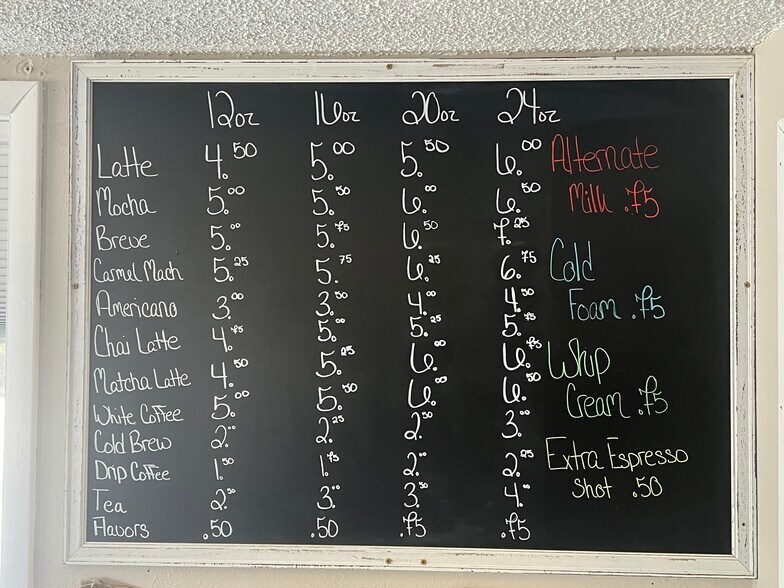 12oz 16oz 20oz 24oz
Latte 4.50 5.00 5.50 6.00
Mocha 5.00 5.50 6.00 6.50
Breve 5.00 5.75 6.50 7.25
Carmel Mach 5.25 5.75 6.25 6.75
Americano 3.00 3.50 4.00 4.50
Chai Latte 4.75 5.00 5.25 5.75
Matcha Latte 4.50 5.25 6.00 6.75
White Coffee 5.00 5.50 6.00 6.50
Cold Brew 2.00 2.25 2.50 3.00
Drip Coffee 1.50 1.75 2.00 2.25
Tea 2.50 3.00 3.50 4.00
Flavors .50 .50 .75 .75
Alternate
Milk .75
Cold
Foam .75
Whip
Cream .75
Extra Espresso
Shot .50